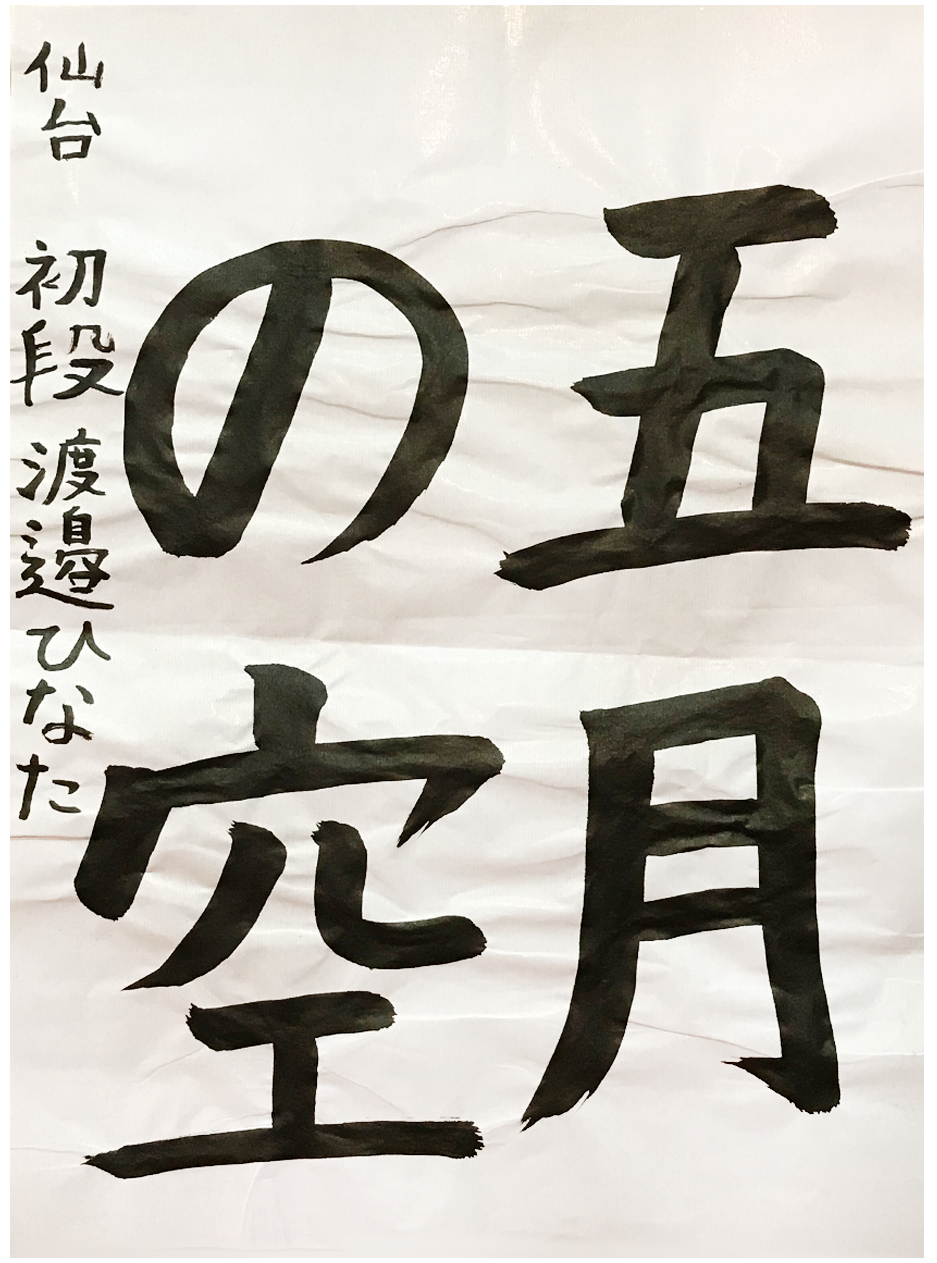 五月
の空
仙台 初段 渡邉ひなた